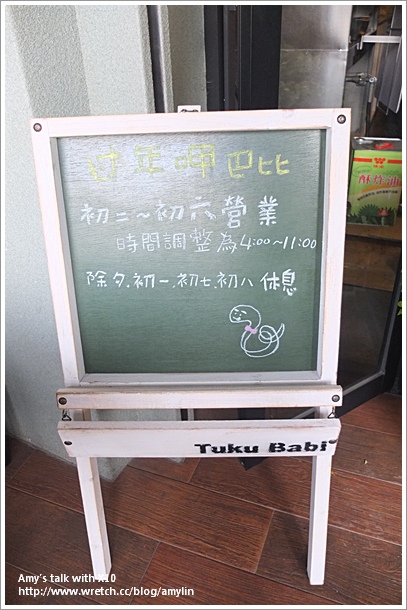 过年呷巴比
初二~初六營業
時間調整為4:00~11:00
除夕.初一.初七.初八 休息
Tuku Babi
酥炸油
Amy's talk with X10
http://www.wretch.cc/blog/amylin